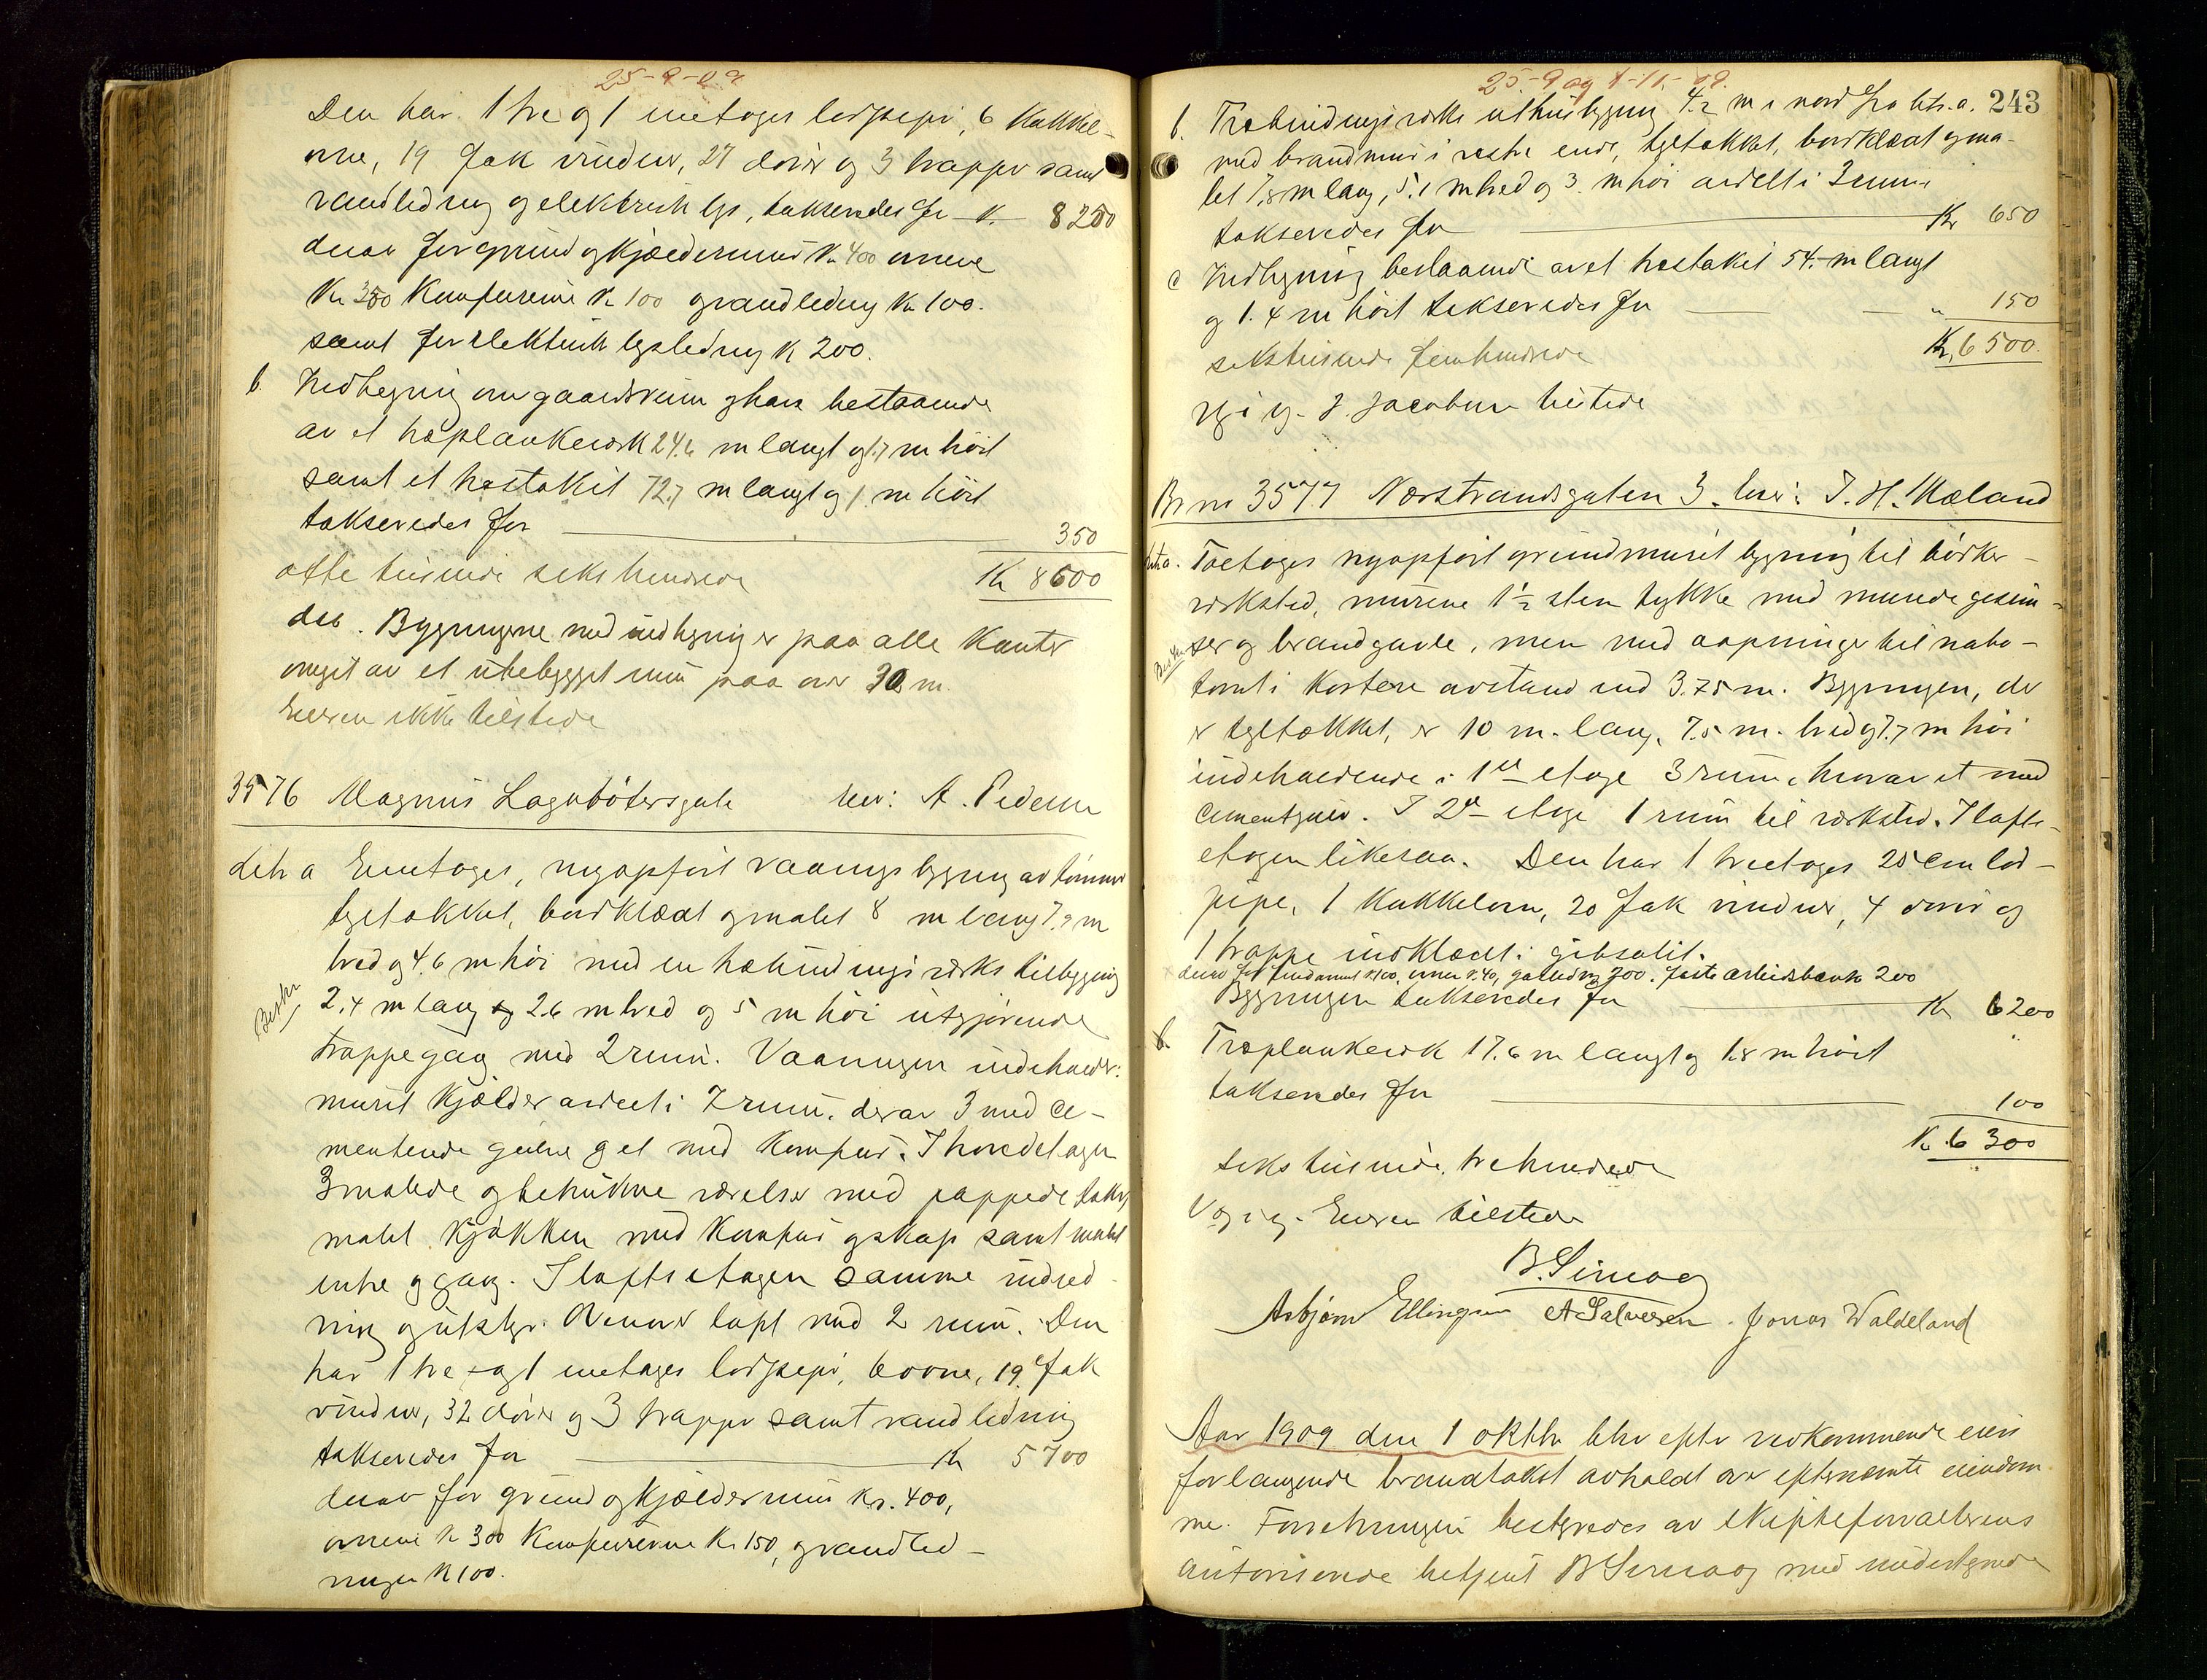 25-9-09
Den har 1 tre og 1 enetages lodpepi, 6 kakkel-
ovne, 19 fak vinduer, 27 dører og 3 trapper samt
vandledning og elektrisk lys, takseredes for K. 8250
derav for grund og kjældermur Kr 400 ovnene
Kr 350 Komfurene Kr 100 og vandledning Kr 100.
samt for elektrisk lysledning K 200.
b. Indhegning om gaardsrum og have bestaaende
av et træplankeverk 24.6 m langt og 1.7 m høit
samt et træstakit 72.7 m langt og 1 m høit
takseredes for 350
otte tusinde seks hundrede Kr 8600
des. Bygningerne med indhegning er paa alle kanter
omgit av et ubebygget rum paa over 30 m.
Eieren ikke tilstede
3576 Magnus Lagabøtersgate eier: A. Pedersen
litr a Enetages, nyopført vaaningsbygning av tømmer
tegltækket, bordklædt og malet 8 m lang 7.9 m
bred og 4.6 m høi med en træbindingsverks tilbygning
Beskr
2.4 m lang og 2.6 m bred og 5 m høi utgjørende
trappegang med 2 rum. Vaaningen indeholder:
muret kjælder avdelt i 7 rum. derav 3 med ce-
menterede gulve og et med komfur. I hovedetagen
3 malede og betrukne værelser med pappede tak,
malet kjøkken med komfur og skap samt malet
entre og gang. I loftsetagen samme indred-
ning og utstyr. Ovenover loft med 2 rum. Den
har 1 tre- og 1 enetages lodpepi, 6 ovne, 19 fak
vinduer, 32 dører og 3 trapper samt vandledning
takseredes for Kr 5700
derav for grund og kjældermur Kr. 400,
ovnene Kr 300 Komfurerne Kr 150, og vandled-
ningen Kr 100.
25-9 og 1-11-09.
243
b. Træbindingsverks uthusbygning 4.2 m i nord fra litr. a.
med brandmur i vestre ende, tegltækket, bordklædt og ma-
let 7.8 m lang, 5.1 m bred og 3. m høi avdelt i 3 rum
takseredes for Kr 650
c Indhegning bestaaende av et træstakit 54.- m langt
og 1.4 m høit takseredes for " 150
sekstusinde femhundrede Kr. 6500.
V. g. i g. J. Jacobsen tilstede
Br nr 3577 Nærstrandsgaten 3. eier: T. H. Mæland
Litr. a. Toetages nyopført grundmuret bygning til bødker-
verksted, murene 1½ sten tykke med murede gesim-
Beskr
ser og brandgavle, men med aapninger til nabo-
tomt i kortere avstand end 3.75 m. Bygningen, der
er tegltækket, er 10 m. lang, 7.5 m. bred og 7.7 m høi
indeholdende i 1ste etage 3 rum, hvorav et med
cementgulv. I 2den etage 1 rum til verksted. I lofts-
etagen likesaa. Den har 1 treetages 25 cm lod-
pipe, 1 kakkelovn, 20 fak vinduer, 4 dører og
1 trappe indklædt i gibsolit.
derav for fundament Kr 100, ovnen Kr. 40, gasledning 200. faste arbeidsbænk 200
Bygningen takseredes for Kr 6200
b. Træplankeverk 17.6 m langt og 1.8 m høit
takseredes for 100
Kr 6300
seks tusinde, tre hundrede
V. og i g. Eieren tilstede
B. Sirnaag
Asbjørn Ellingsen A Salvesen. Jonas Waldeland
Aar 1909 den 1 oktbr blev efter vedkommende eiers
forlangende brandtakst avholdt over efternævnte eiendom-
me. Forretningen bestyredes av skifteforvalterens
autoriserede betjent B Sirnaag med undertegnede